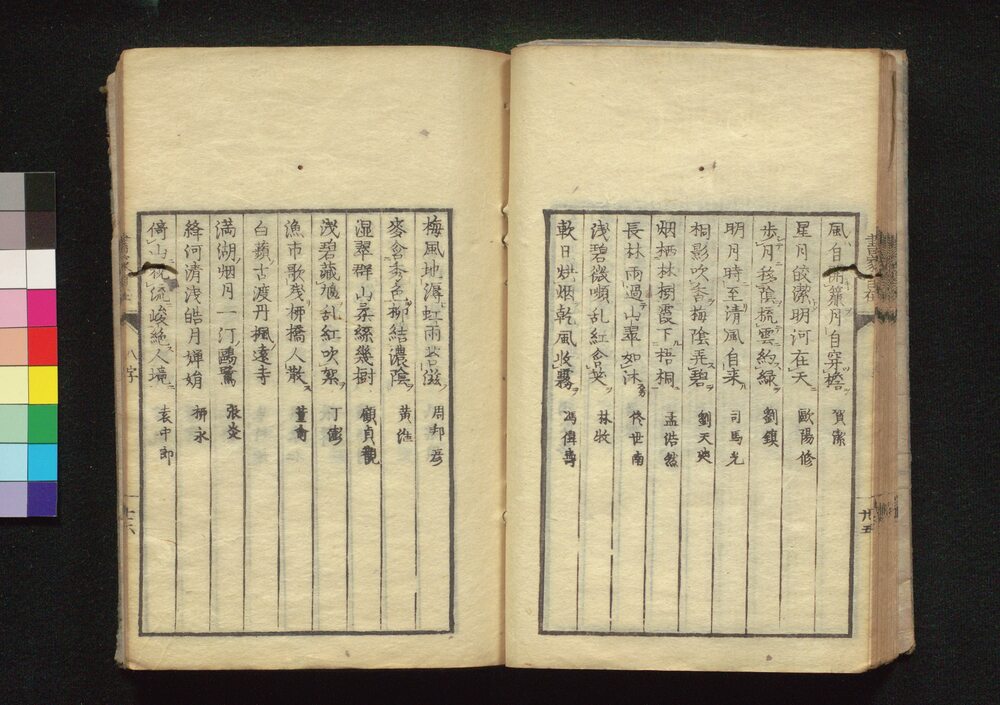 風自開簾月自穿檐 賀潔
星月皎潔明河在天 歐陽修
歩月移陰梳雲約緑 劉鎮
明月時至清風自来 司馬光
桐影吹香梅陰弄碧 劉天
烟栖林樹霞下梧桐 孟浩然
長林雨過山翠如沐 佟世南
浅碧微乱紅含 林牧
軟日烘烟乾風收霧 馮偉壽
梅風地溽虹雨苔滋 周邦彦
麥含秀色柳結濃陰 黄
湿翠群山柔絲幾樹 顧貞觀
浅碧藏乱紅吹絮 丁
漁市歌残柳橋人散 董
白蘋古渡丹楓遠寺
満湖烟月一汀鷗鷺 張炎
絳河清浅皓月嬋娟 柳永
倚山枕流峻絶人境 袁中郎
八字
廿五
廿六